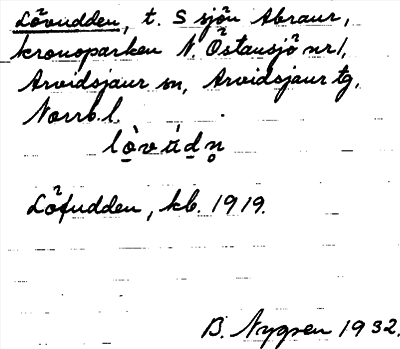 Lövudden, t. S sjön Abraur,
kronoparken N. Östansjö nr 1,
Arvidsjaur sn, Arvidsjaur tg,
Norrb. l.
lòvúdn̥
Löfudden, kb. 1919.
B. Nygren 1932.